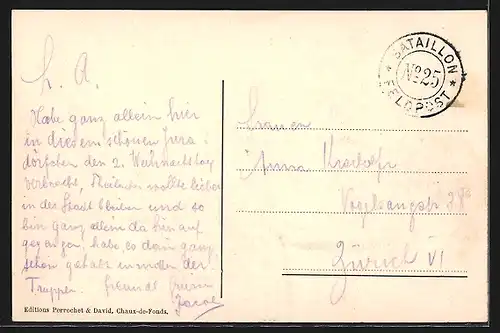 L. A.
Habe ganz allein hier
in diesem schönen Jura-
dörfchen den 2. Weihnachtstag
verbracht, wollte lieber
in der Stadt bleiben und so
bin ganz allein da hinauf
gegangen, habe es dann ganz
schön gehabt inmitten der
Truppen. Freundl.
Jacob
Editions Perrochet & David, Chaux-de-Fonds.
BATAILLON
No 25
FELDPOST
Anna
Vogelsangstr.
Zürich VI